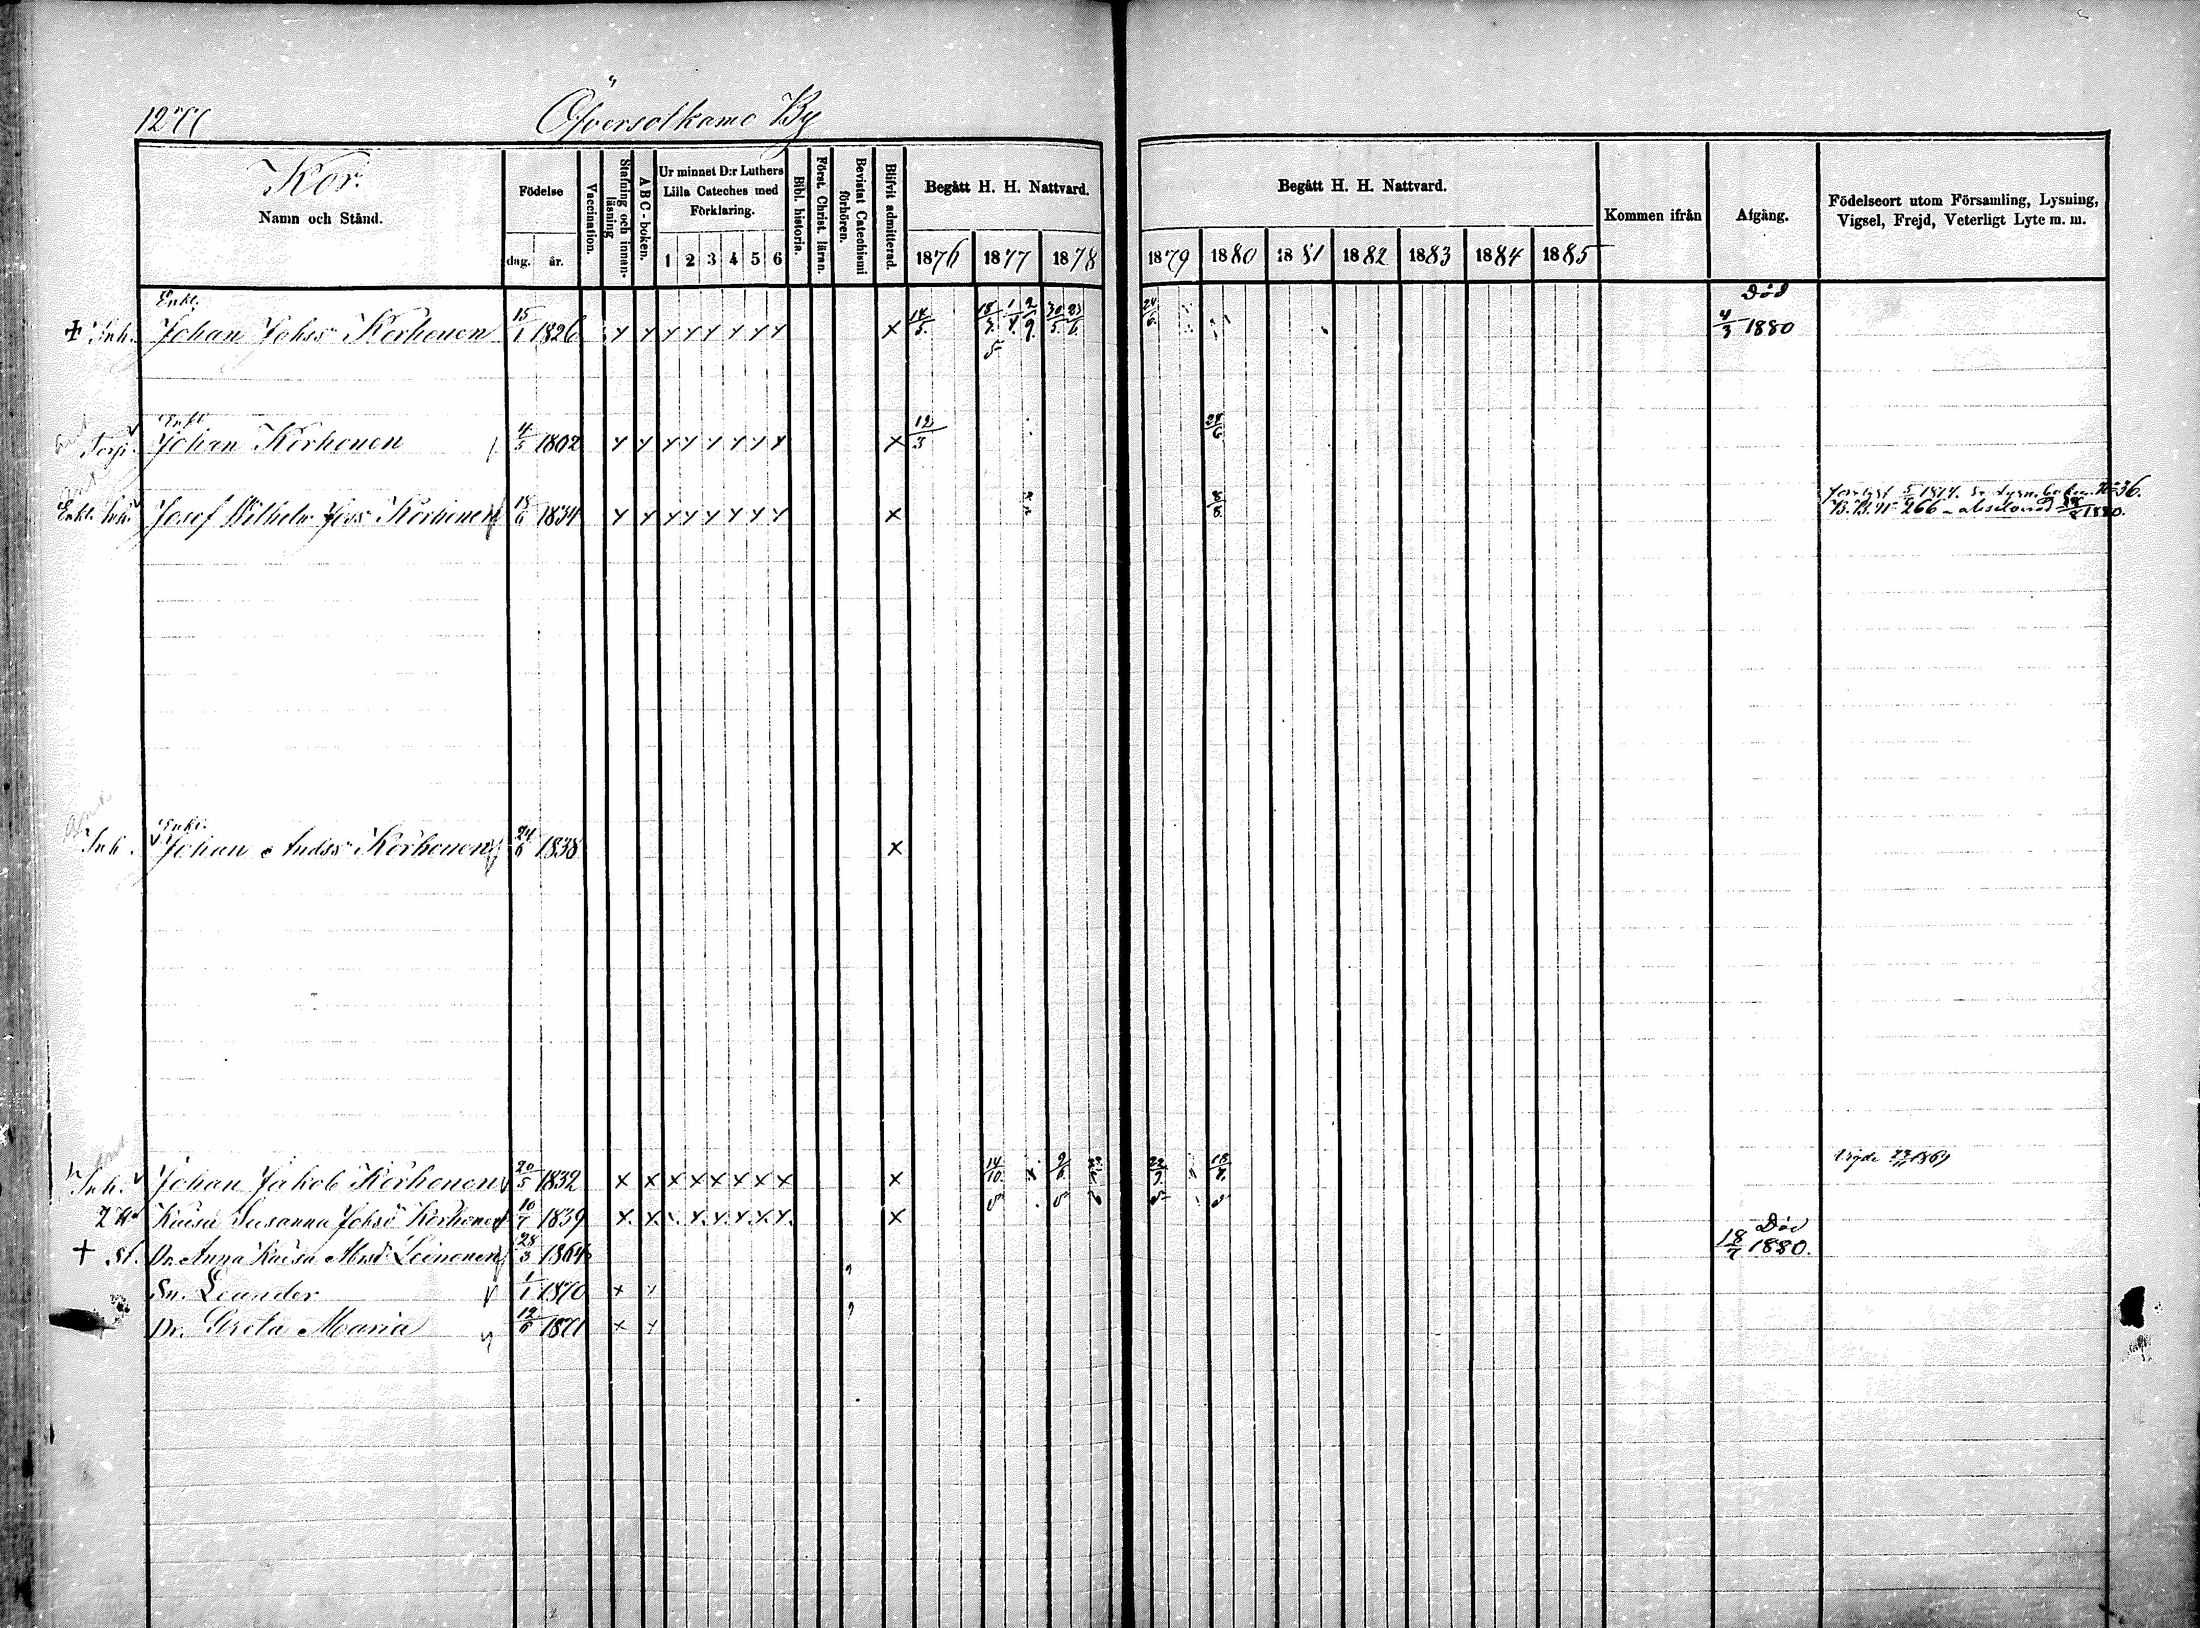 Öfversotkamo By
Kor.
Namn och Stånd.
Födelse
dag. år.
Vaccination.
Stafning och innanläsning
A B C-boken.
Ur minnet D:r Luthers Lilla Cateches med Förklaring.
1 2 3 4 5 6
Bibl. historia.
Först. Christ. läran.
Bevistat Catechismi förhören.
Blifvit admitterad.
Begått H. H. Nattvard.
1876 1877 1878
Begått H. H. Nattvard.
1879 1880 1881 1882 1883 1884 1885
Kommen ifrån
Afgång.
Födelseort utom Församling, Lysning, Vigsel, Frejd, Veterligt Lyte m. m.
Enkl.
† Inh. Johan Johss Korhonen 15/1 1826 x x x x x x x x x 14/5 18/3 1/7 2/9 30/5 23/6 24/6 Död 4/3 1880
Enkl
Torp. Johan Korhonen 4/5 1802 x x x x x x x x x 12/3 24/6
Enkl. Inh. Josef Wilhelm Korhonen 18/6 1834 x x x x x x x x x 8/8
N:o 36.
266 1880.
Enkl.
Inh. Johan Andss Korhonen 24/6 1838 x
Inh. Johan Jakob Korhonen 20/5 1832 x x x x x x x x x 14/10 9/6 23/9 18/7 1869
2 H. Kaisa Susanna Johsd Korhonen 10/7 1839 x x x x x x x x x
† St. Dr. Anna Kaisa Leinonen 28/3 1864 Död 18/7 1880.
Sn. Leander 1/1 1870 x x
Dr. Greta Maria 12/6 1871 x x